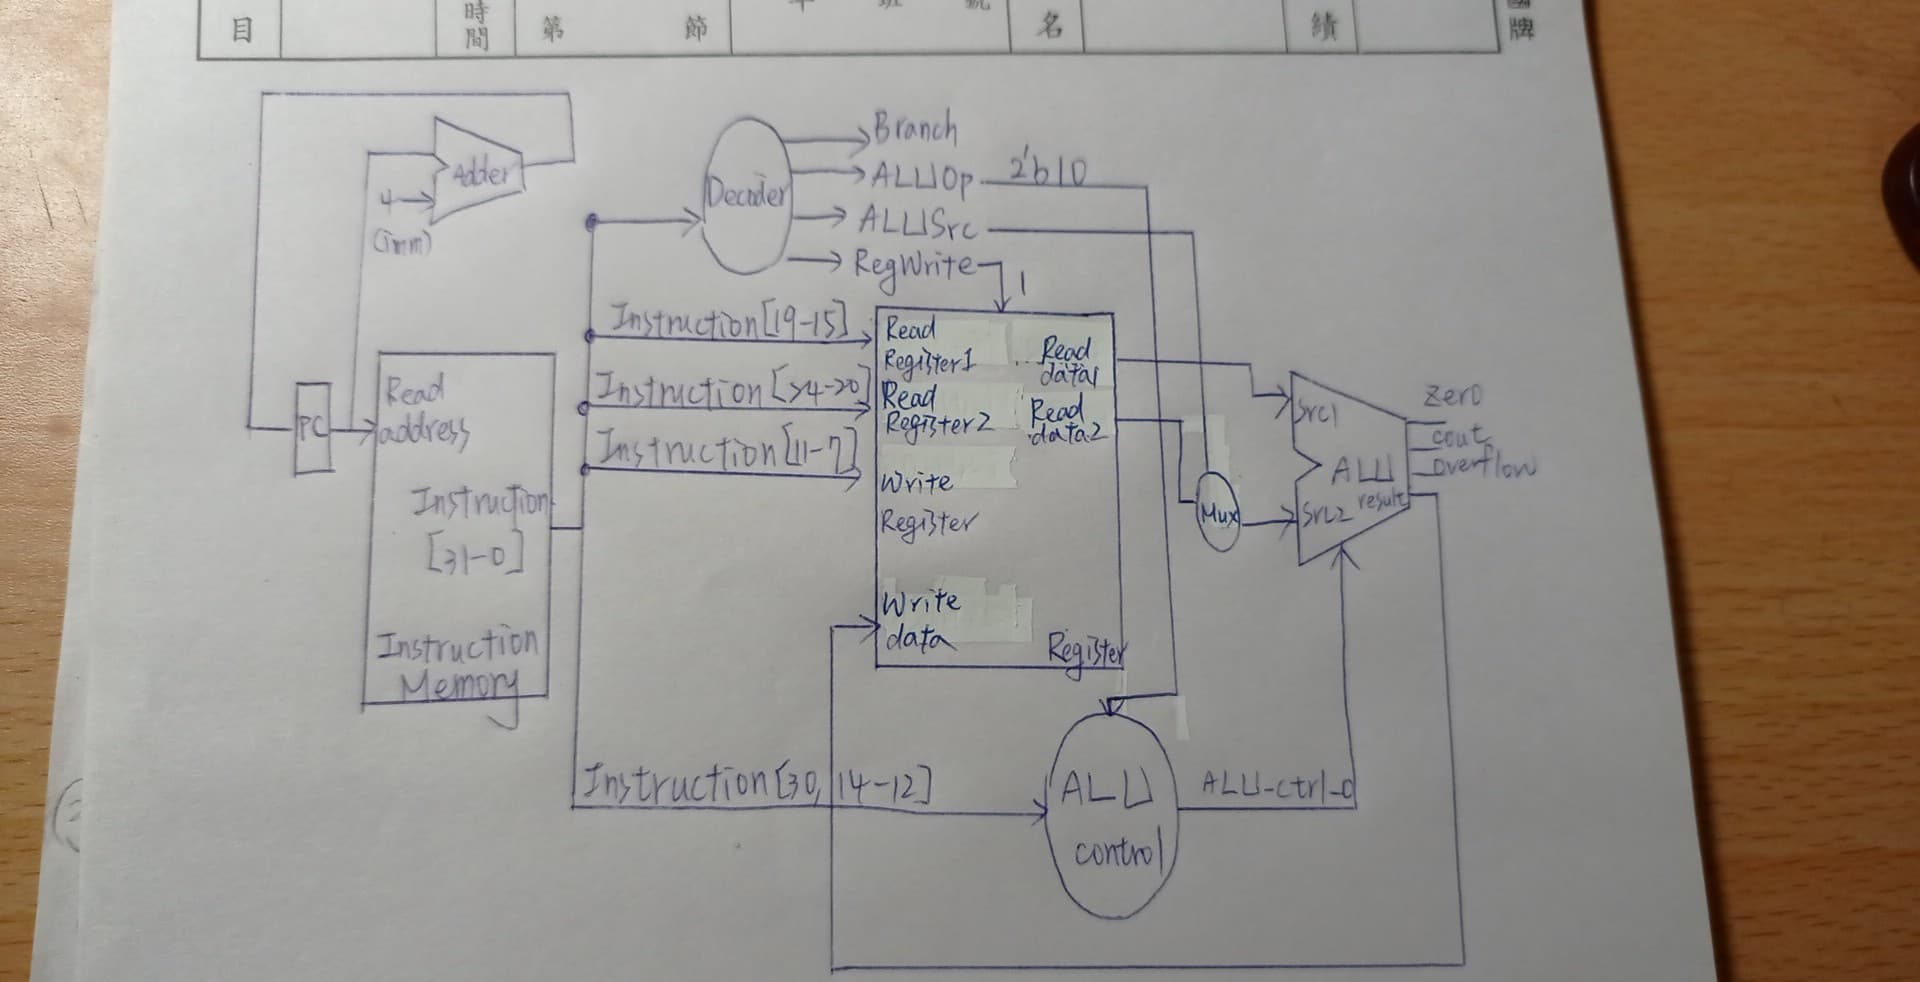 目
時
間
第 節
名
績
牌
Adder
4
(imm)
PC
Read
address
Instruction
[31-0]
Instruction
Memory
Decoder
Branch
ALUOp 2'b10
ALUSrc
RegWrite
1
Instruction[19-15]
Instruction[24-20]
Instruction[11-7]
Read
Register1
Read
Register2
Write
Register
Write
data
Read
data1
Read
data2
Register
Mux
Src1
ALU
Src2 result
Zero
cout
overflow
Instruction[30, 14-12]
ALU
control
ALU-ctrl-0